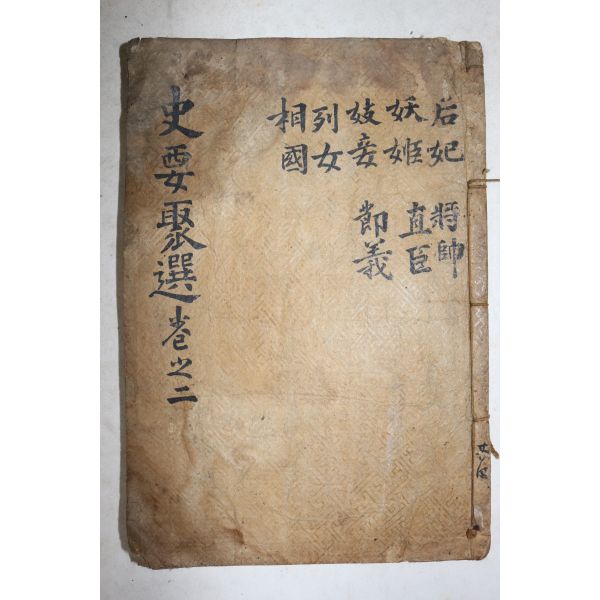 后妃 將帥
妖姬 直臣
妓妾 節義
列女
相國
史要聚選卷之二